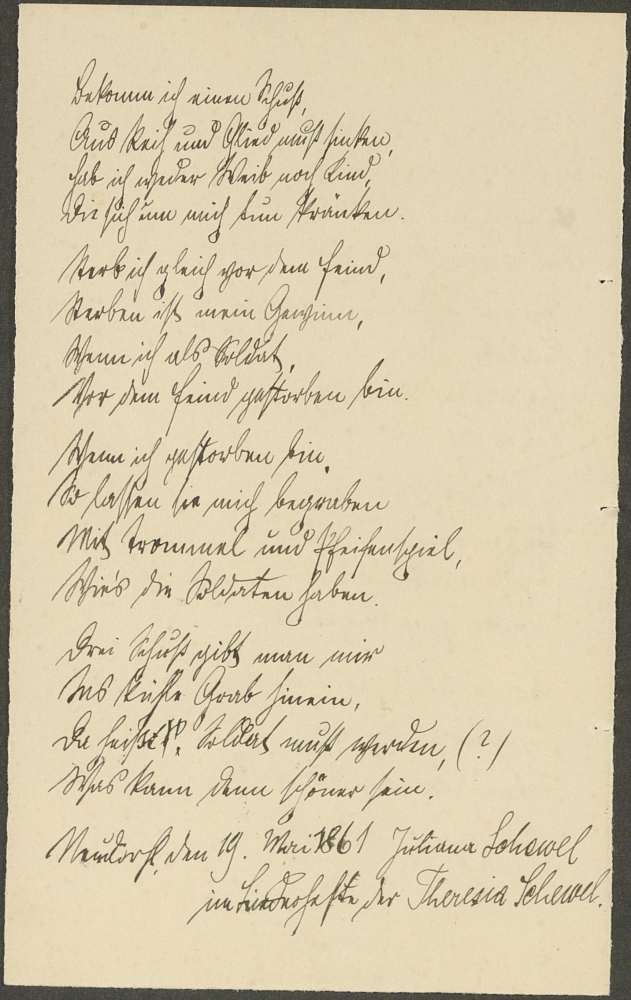 Bekomm ich einen Schuß,
Aus Reih und Glied muß sinken,
Hab ich weder Weib noch Kind,
Die sich um mich tun kränken.
Sterb ich gleich vor dem Feind,
Sterben ist mein Gewinn,
Wenn ich als Soldat,
Vor dem Feind gestorben bin.
Wenn ich gestorben bin,
So lassen sie mich begraben
Mit Trommel und Pfeifenspiel,
Wie's die Soldaten haben.
Drei Schuß gibt man mir
Ins kühle Grab hinein,
Da heißt's: Soldat muß werden, (?)
Was kann denn schöner sein.
Neudorf, den 19. Mai 1861 Juliana Schewel
im Liederhefte der Theresia Schewel.